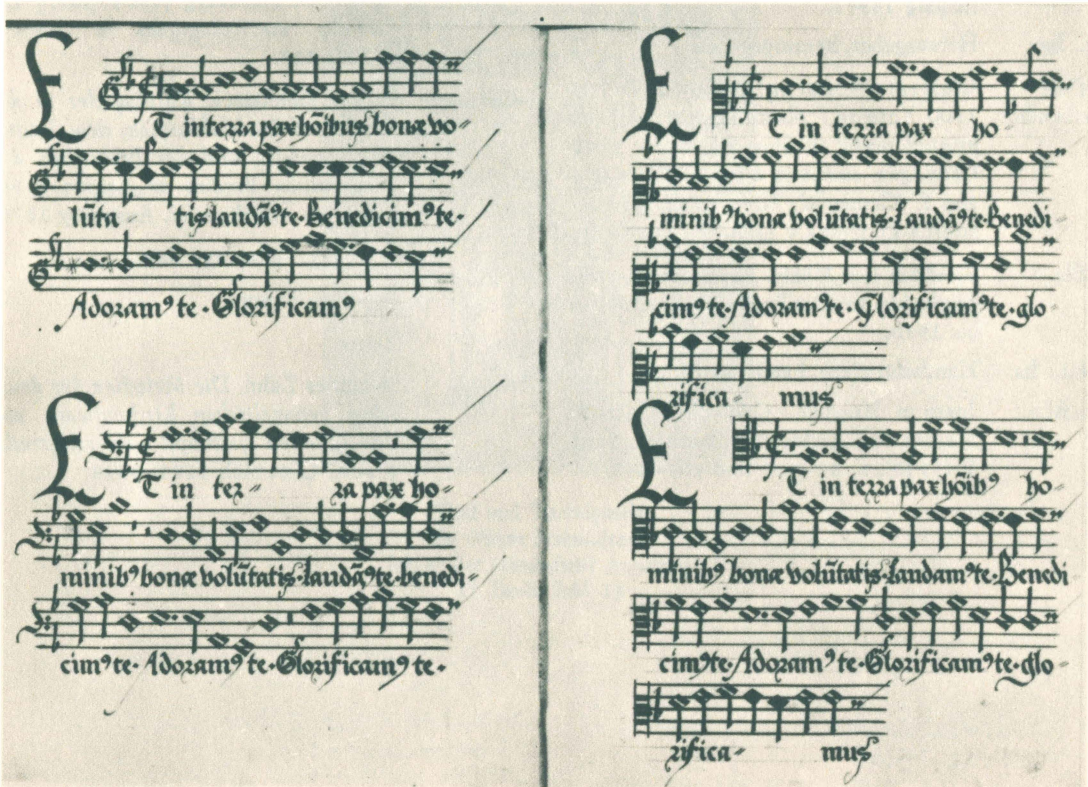 ET in terra pax hõibus bonæ vo-
lũta tis laudãꝰ te · Benedicimꝰ te ·
Adoramꝰ te · Glorificamꝰ
ET in ter- ra pax ho-
minibꝰ bonæ volũtatis · laudãꝰ te · benedi-
cimꝰ te · Adoramꝰ te · Glorificamꝰ te ·
ET in terra pax ho-
minibꝰ bonæ volũtatis · Laudãꝰ te · Benedi
cimꝰ te · Adoramꝰ te · Glorificamꝰ te · glo
rifica- mus
ET in terra pax hõibꝰ ho-
minibꝰ bonæ volũtatis · Laudamꝰ te · Benedi
cimꝰ te · Adoramꝰ te · Glorificamꝰ te · glo
rifica- mus